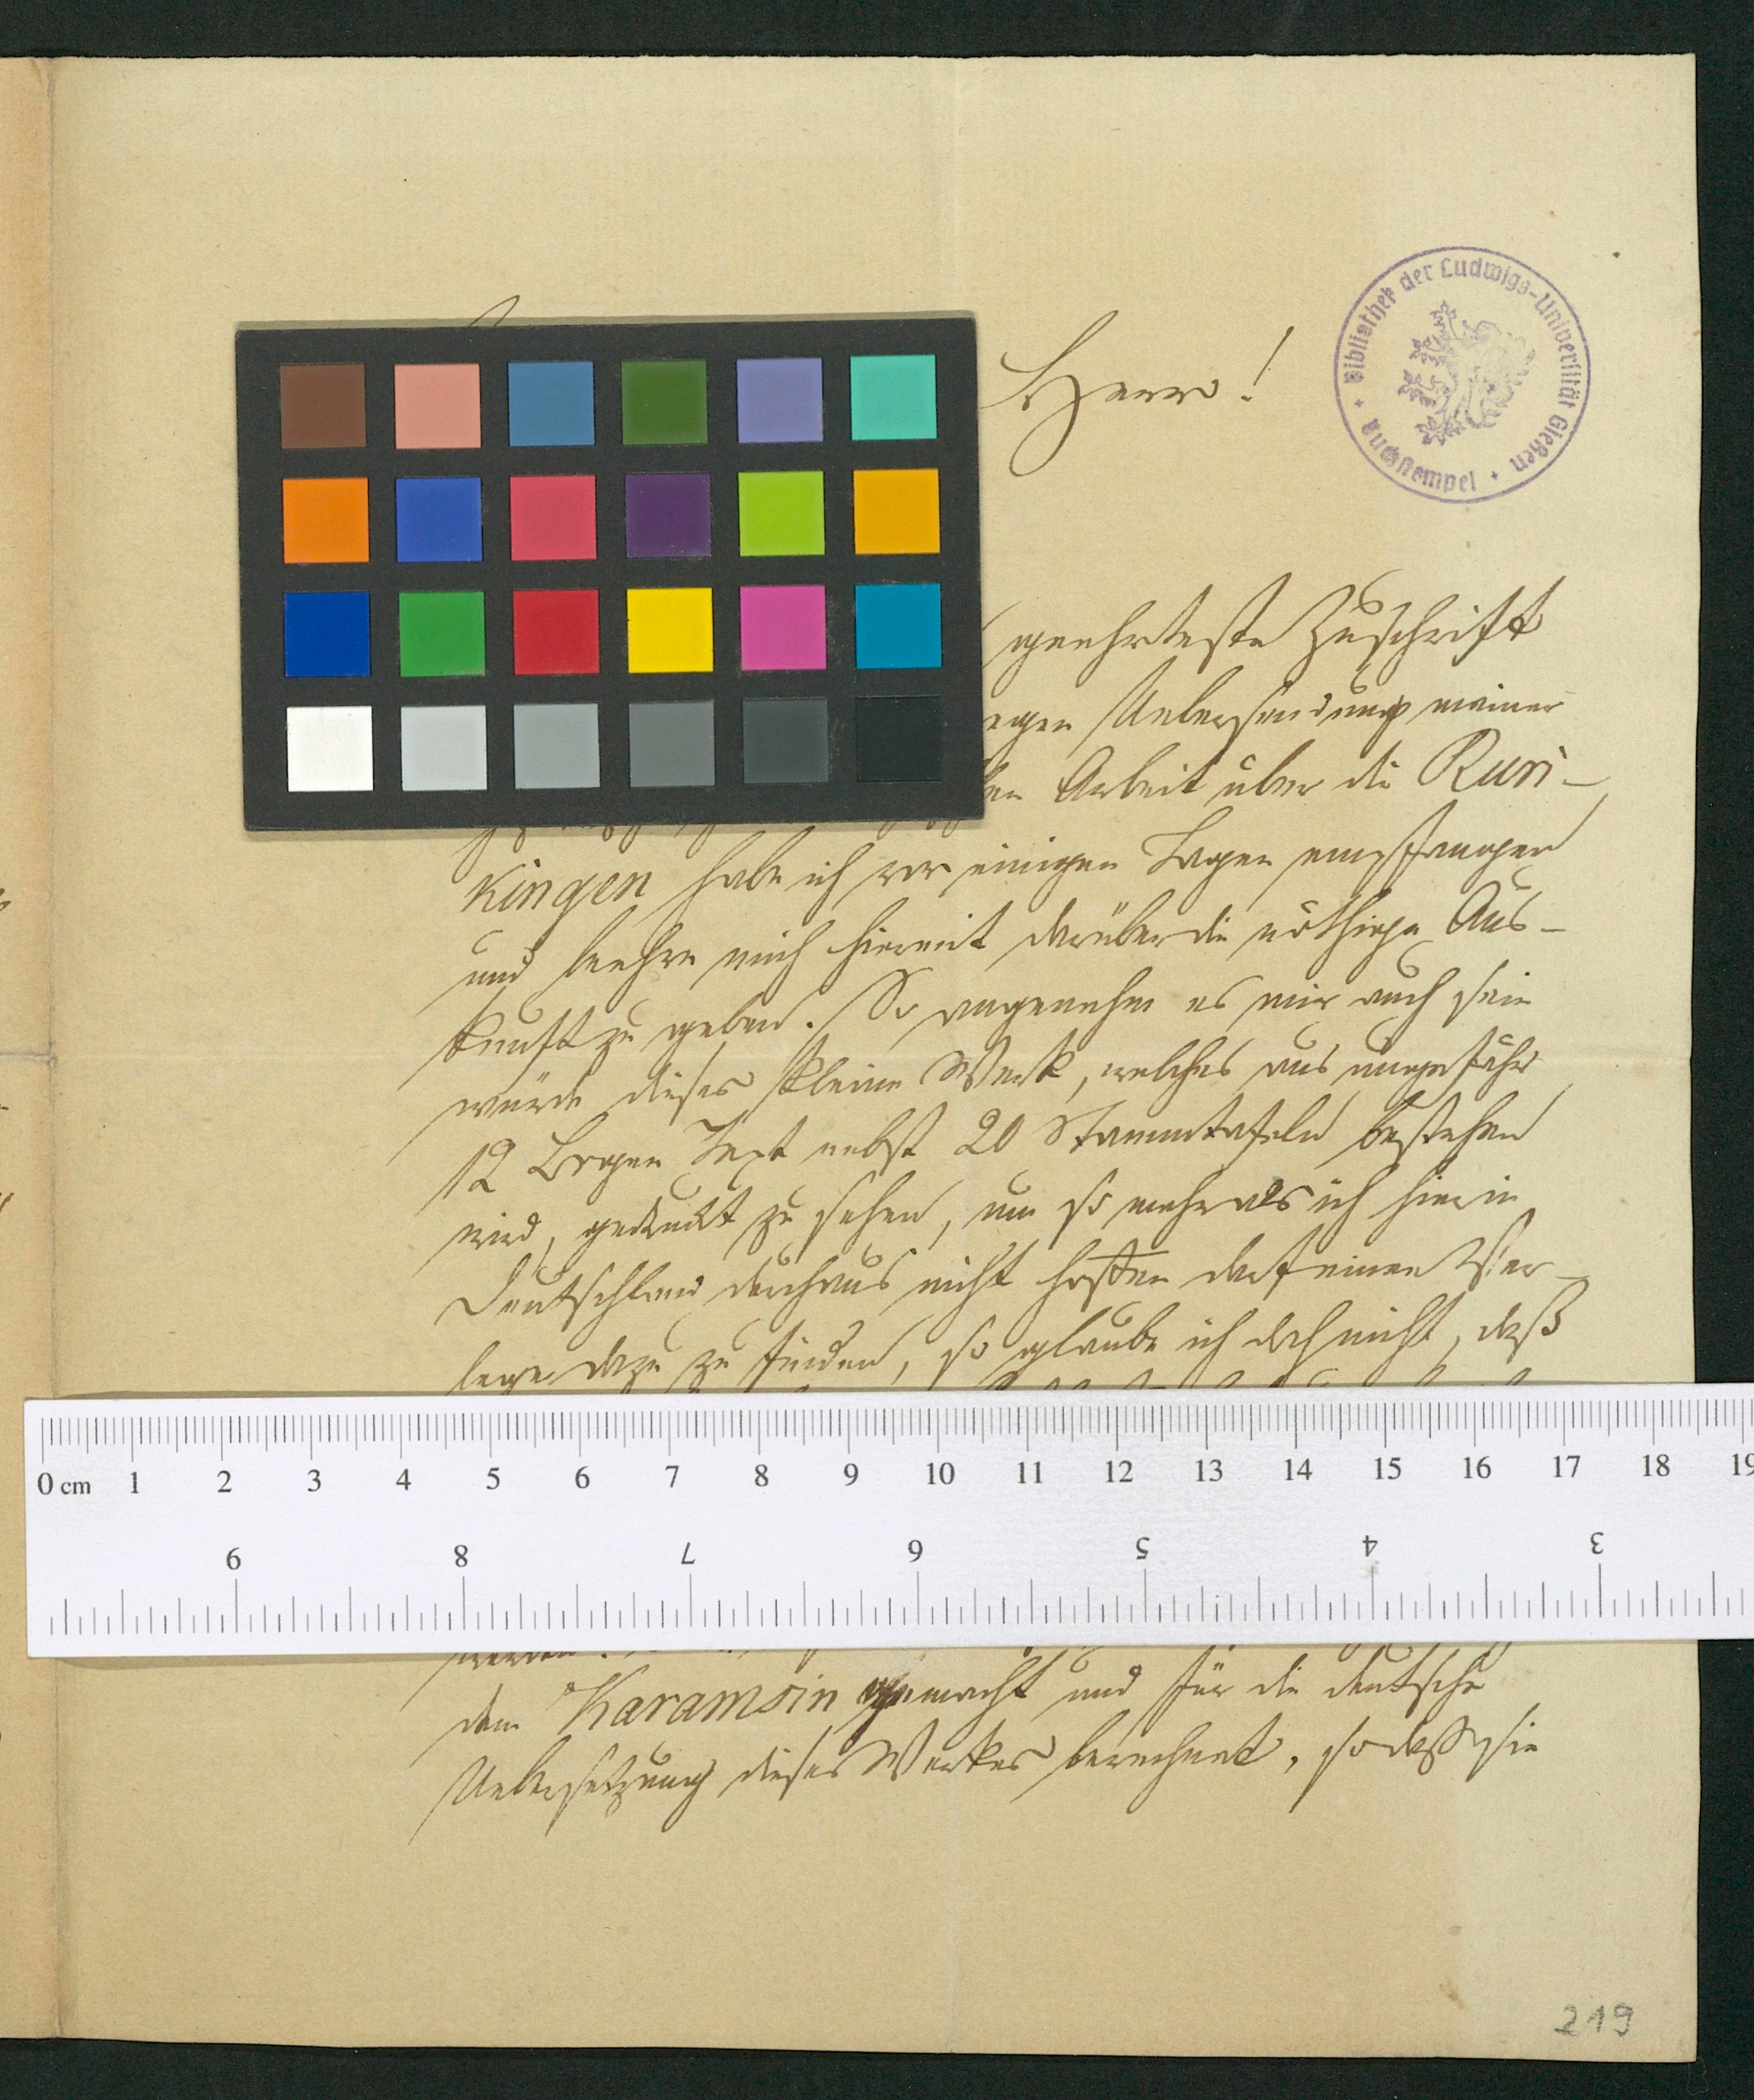 Herrn!
Bibliothek der Ludwigs-Universität Gießen
Buchstempel
geehrteste Zuschrift
egen Uebersendung meiner
en Arbeit über die Ruri-
kingen habe ich vor einigen Tagen empfangen
und beehre mich hiermit darüber die nöthige Aus-
kunft zu geben. So angenehm es mir auch sein
würde dieses kleine Werk, welches aus ungefähr
12 Bogen Text nebst 20 Stammtafeln bestehen
wird, gedruckt zu sehen, um so mehr als ich hier in
Deutschland durchaus nicht hoffen darf einen Ver-
leger dazu zu finden, so glaube ich doch nicht, daß
0 cm 1 2 3 4 5 6 7 8 9 10 11 12 13 14 15 16 17 18 19
9 8 7 6 5 4 3
werden.
dem Karamsin gemacht und für die deutsche
Uebersetzung dieses Werkes berechnet, so daß sie
219